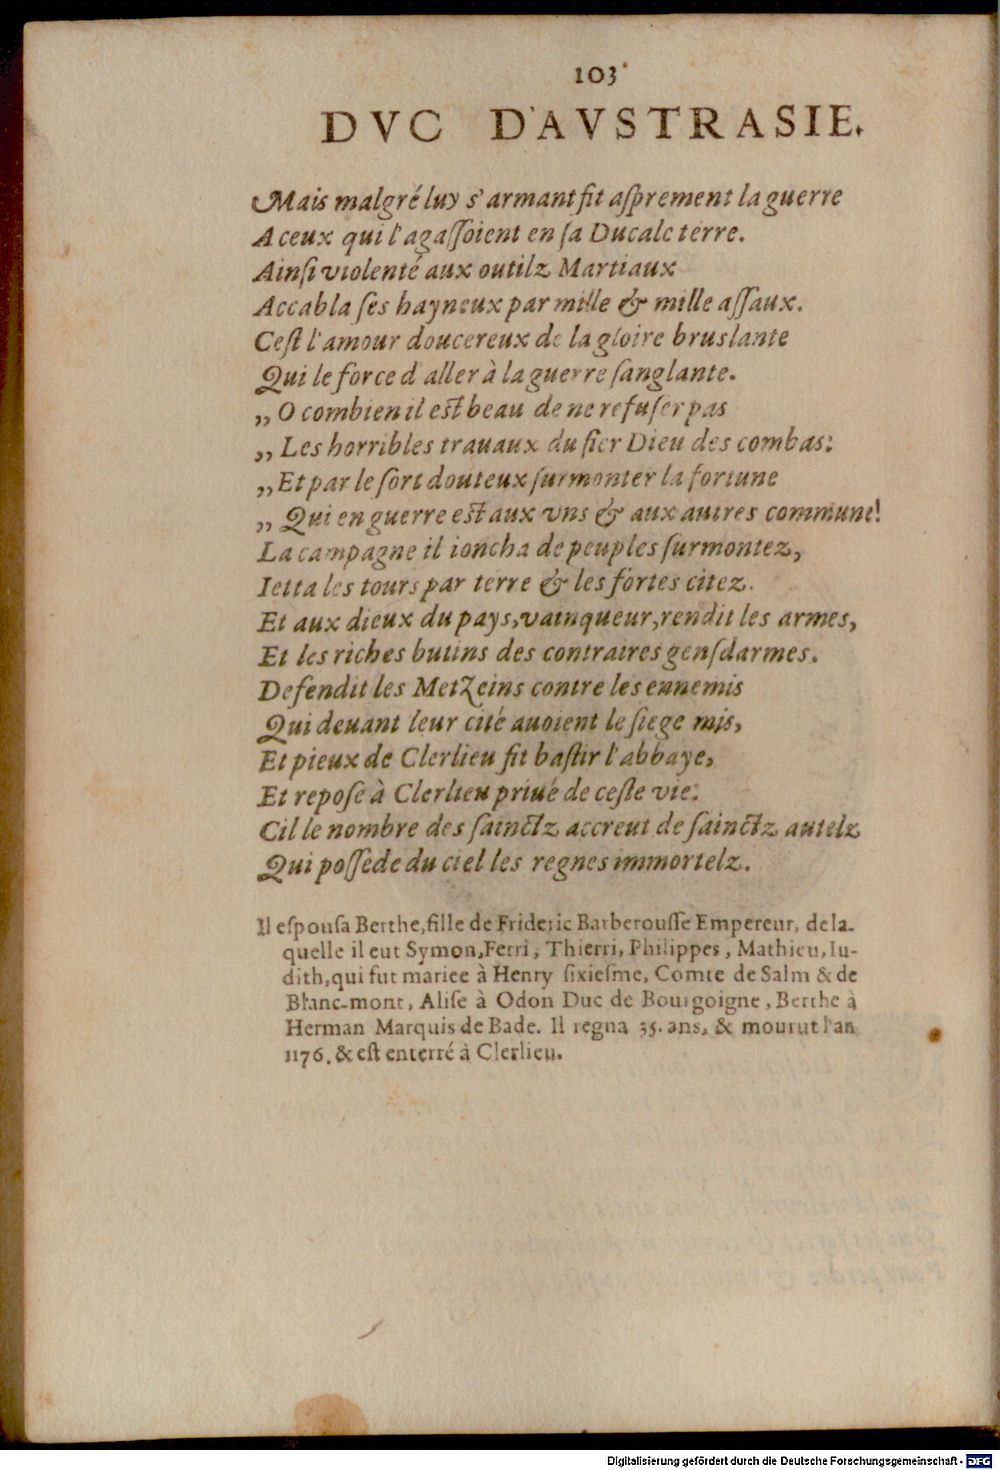 103
DVC D'AVSTRASIE.
Mais malgré luy s'armant fit aſprement la guerre
A ceux qui l'agaſſoient en ſa Ducale terre.
Ainſi violenté aux outilz Martiaux
Accabla ſes hayneux par mille & mille aſſaux.
Ceſt l'amour doucereux de la gloire bruslante
Qui le force d'aller à la guerre ſanglante.
„ O combien il est beau de ne refuſer pas
„ Les horribles trauaux du fier Dieu des combas:
„ Et par le ſort douteux ſurmonter la fortune
„ Qui en guerre est aux vns & aux autres commune!
La campagne il ioncha de peuples ſurmontez,
Ietta les tours par terre & les fortes citez.
Et aux dieux du pays, vainqueur, rendit les armes,
Et les riches butins des contraires genſdarmes.
Defendit les Metzeins contre les ennemis
Qui deuant leur cité auoient le ſiege mis,
Et pieux de Clerlieu fit baſtir l'abbaye,
Et repoſe à Clerlieu priué de ceſte vie.
Cil le nombre des ſainctz accreut de ſainctz autelz
Qui poſſede du ciel les regnes immortelz.
Il eſpouſa Berthe, fille de Frideric Barberouſſe Empereur, dela-
quelle il eut Symon, Ferri, Thierri, Philippes, Mathieu, Iu-
dith, qui fut mariee à Henry ſixieſme, Comte de Salm & de
Blanc-mont, Aliſe à Odon Duc de Bourgoigne, Berthe à
Herman Marquis de Bade. Il regna 35. ans, & mourut l'an
1176. & eſt enterré à Clerlieu.
Digitalisierung gefördert durch die Deutsche Forschungsgemeinschaft - DFG